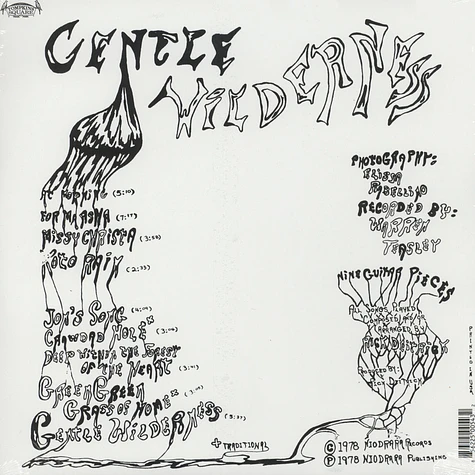 TOMPKINS SQUARE
GENTLE
WILDERNESS
AT MORNING (5:10)
FOR MARSHA (7:17)
MISSY CHRISTA (3:52)
KOTO RAIN (2:33)
JON'S SONG (4:00)
CRAWDAD HOLE + (3:00)
DEEP WITHIN THE FOREST
OF THE HEART (3:10)
GREEN GREEN
GRASS OF HOME + (3:10)
GENTLE WILDERNESS (5:27)
+ TRADITIONAL
PHOTOGRAPHY:
RECORDED BY:
WARREN
TEASLEY
NINE GUITAR PIECES
ALL SONGS PLAYED
COMPOSED AND/OR
ARRANGED BY
RICK DEITRICK
PRODUCED BY:
RICK DEITRICK
© 1978 NIODRARA RECORDS
℗ 1978 NIODRARA PUBLISHING